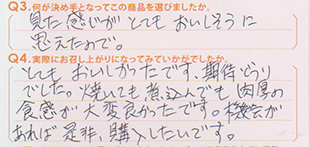 Q3.何が決め手となってこの商品を選びましたか。
見た感じがとてもおいしそうに
思えたので。
Q4.実際にお召し上がりになってみていかがでしたか。
とてもおいしかったです、期待どうり
でした。焼いても煮込んでも肉厚の
食感が大変良かったです。機会が
あれば是非、購入したいです。